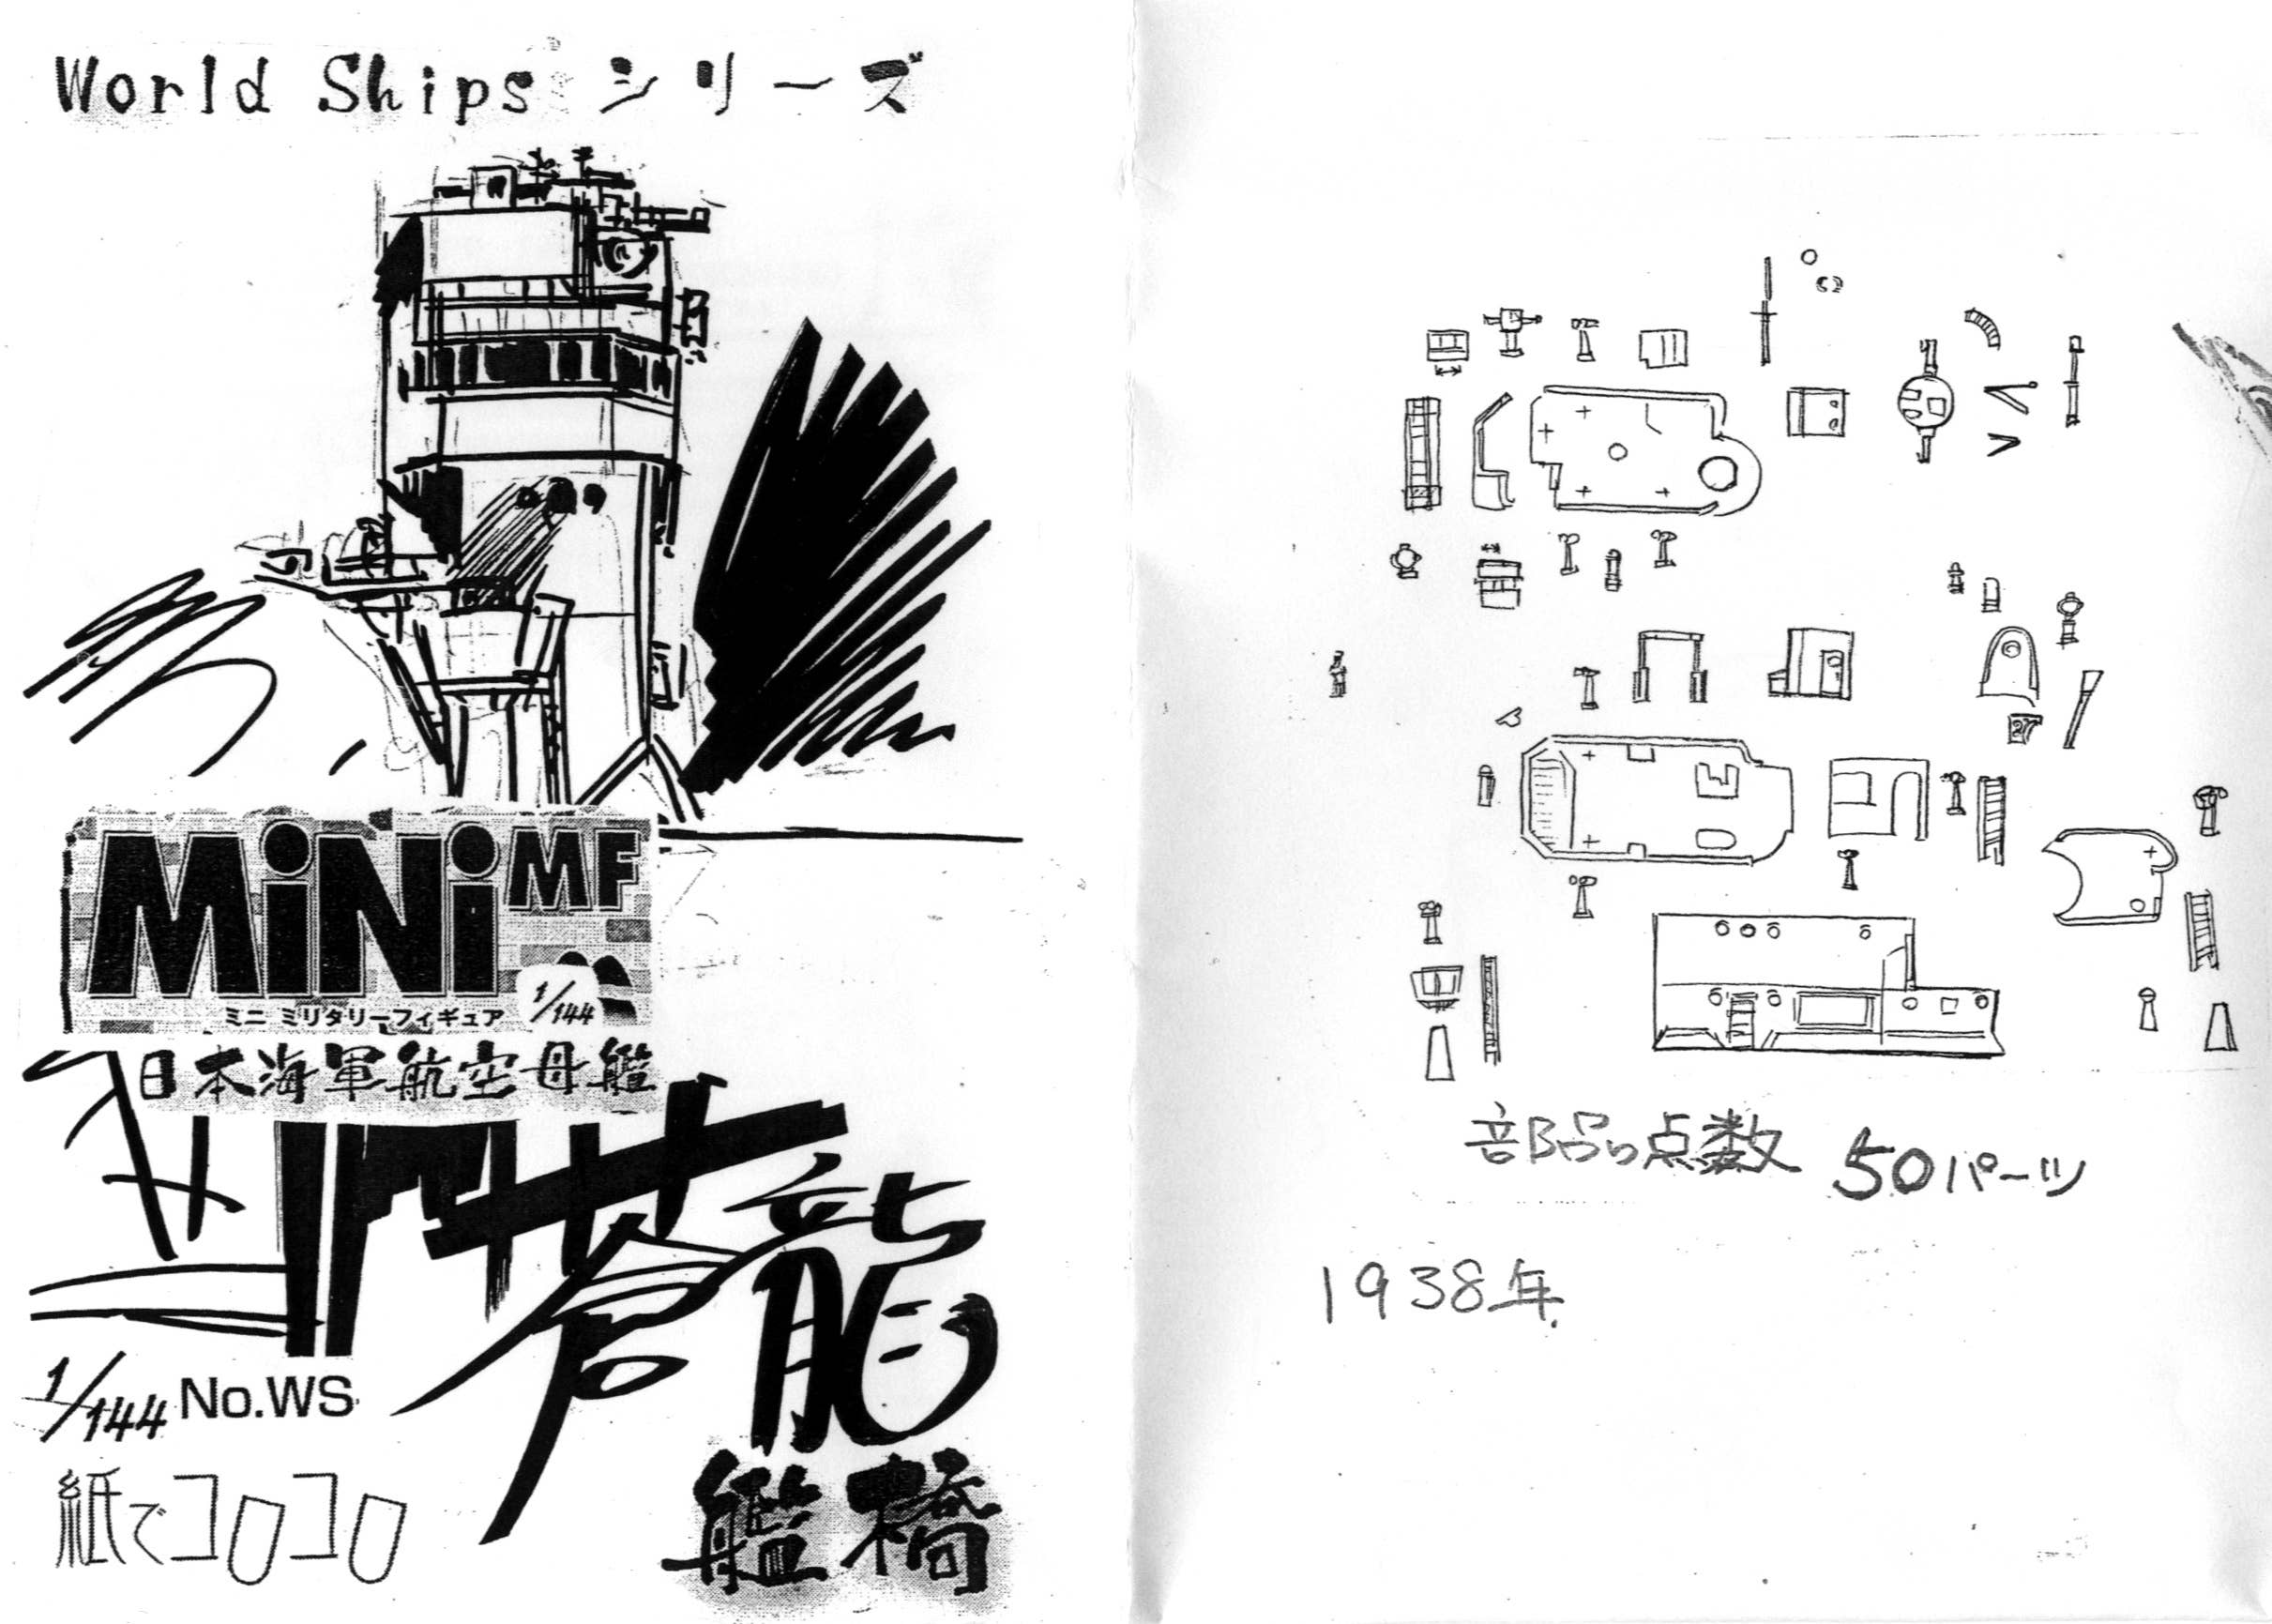 World Ships シリーズ
MiNi MF
1/144
ミニ ミリタリーフィギュア
日本海軍航空母艦
蒼龍
艦橋
1/144 No.WS
紙でコロコロ
部品点数 50パーツ
1938年